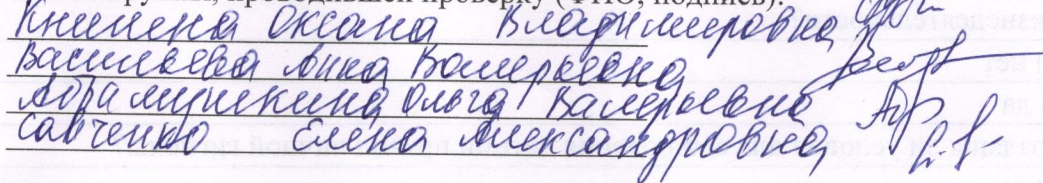 проводившей проверку (ФИО, подпись):
Книшена Оксана Владимировна
Васильева Анна Валерьевна
Абрамушкина Ольга Валерьевна
Савченко Елена Александровна